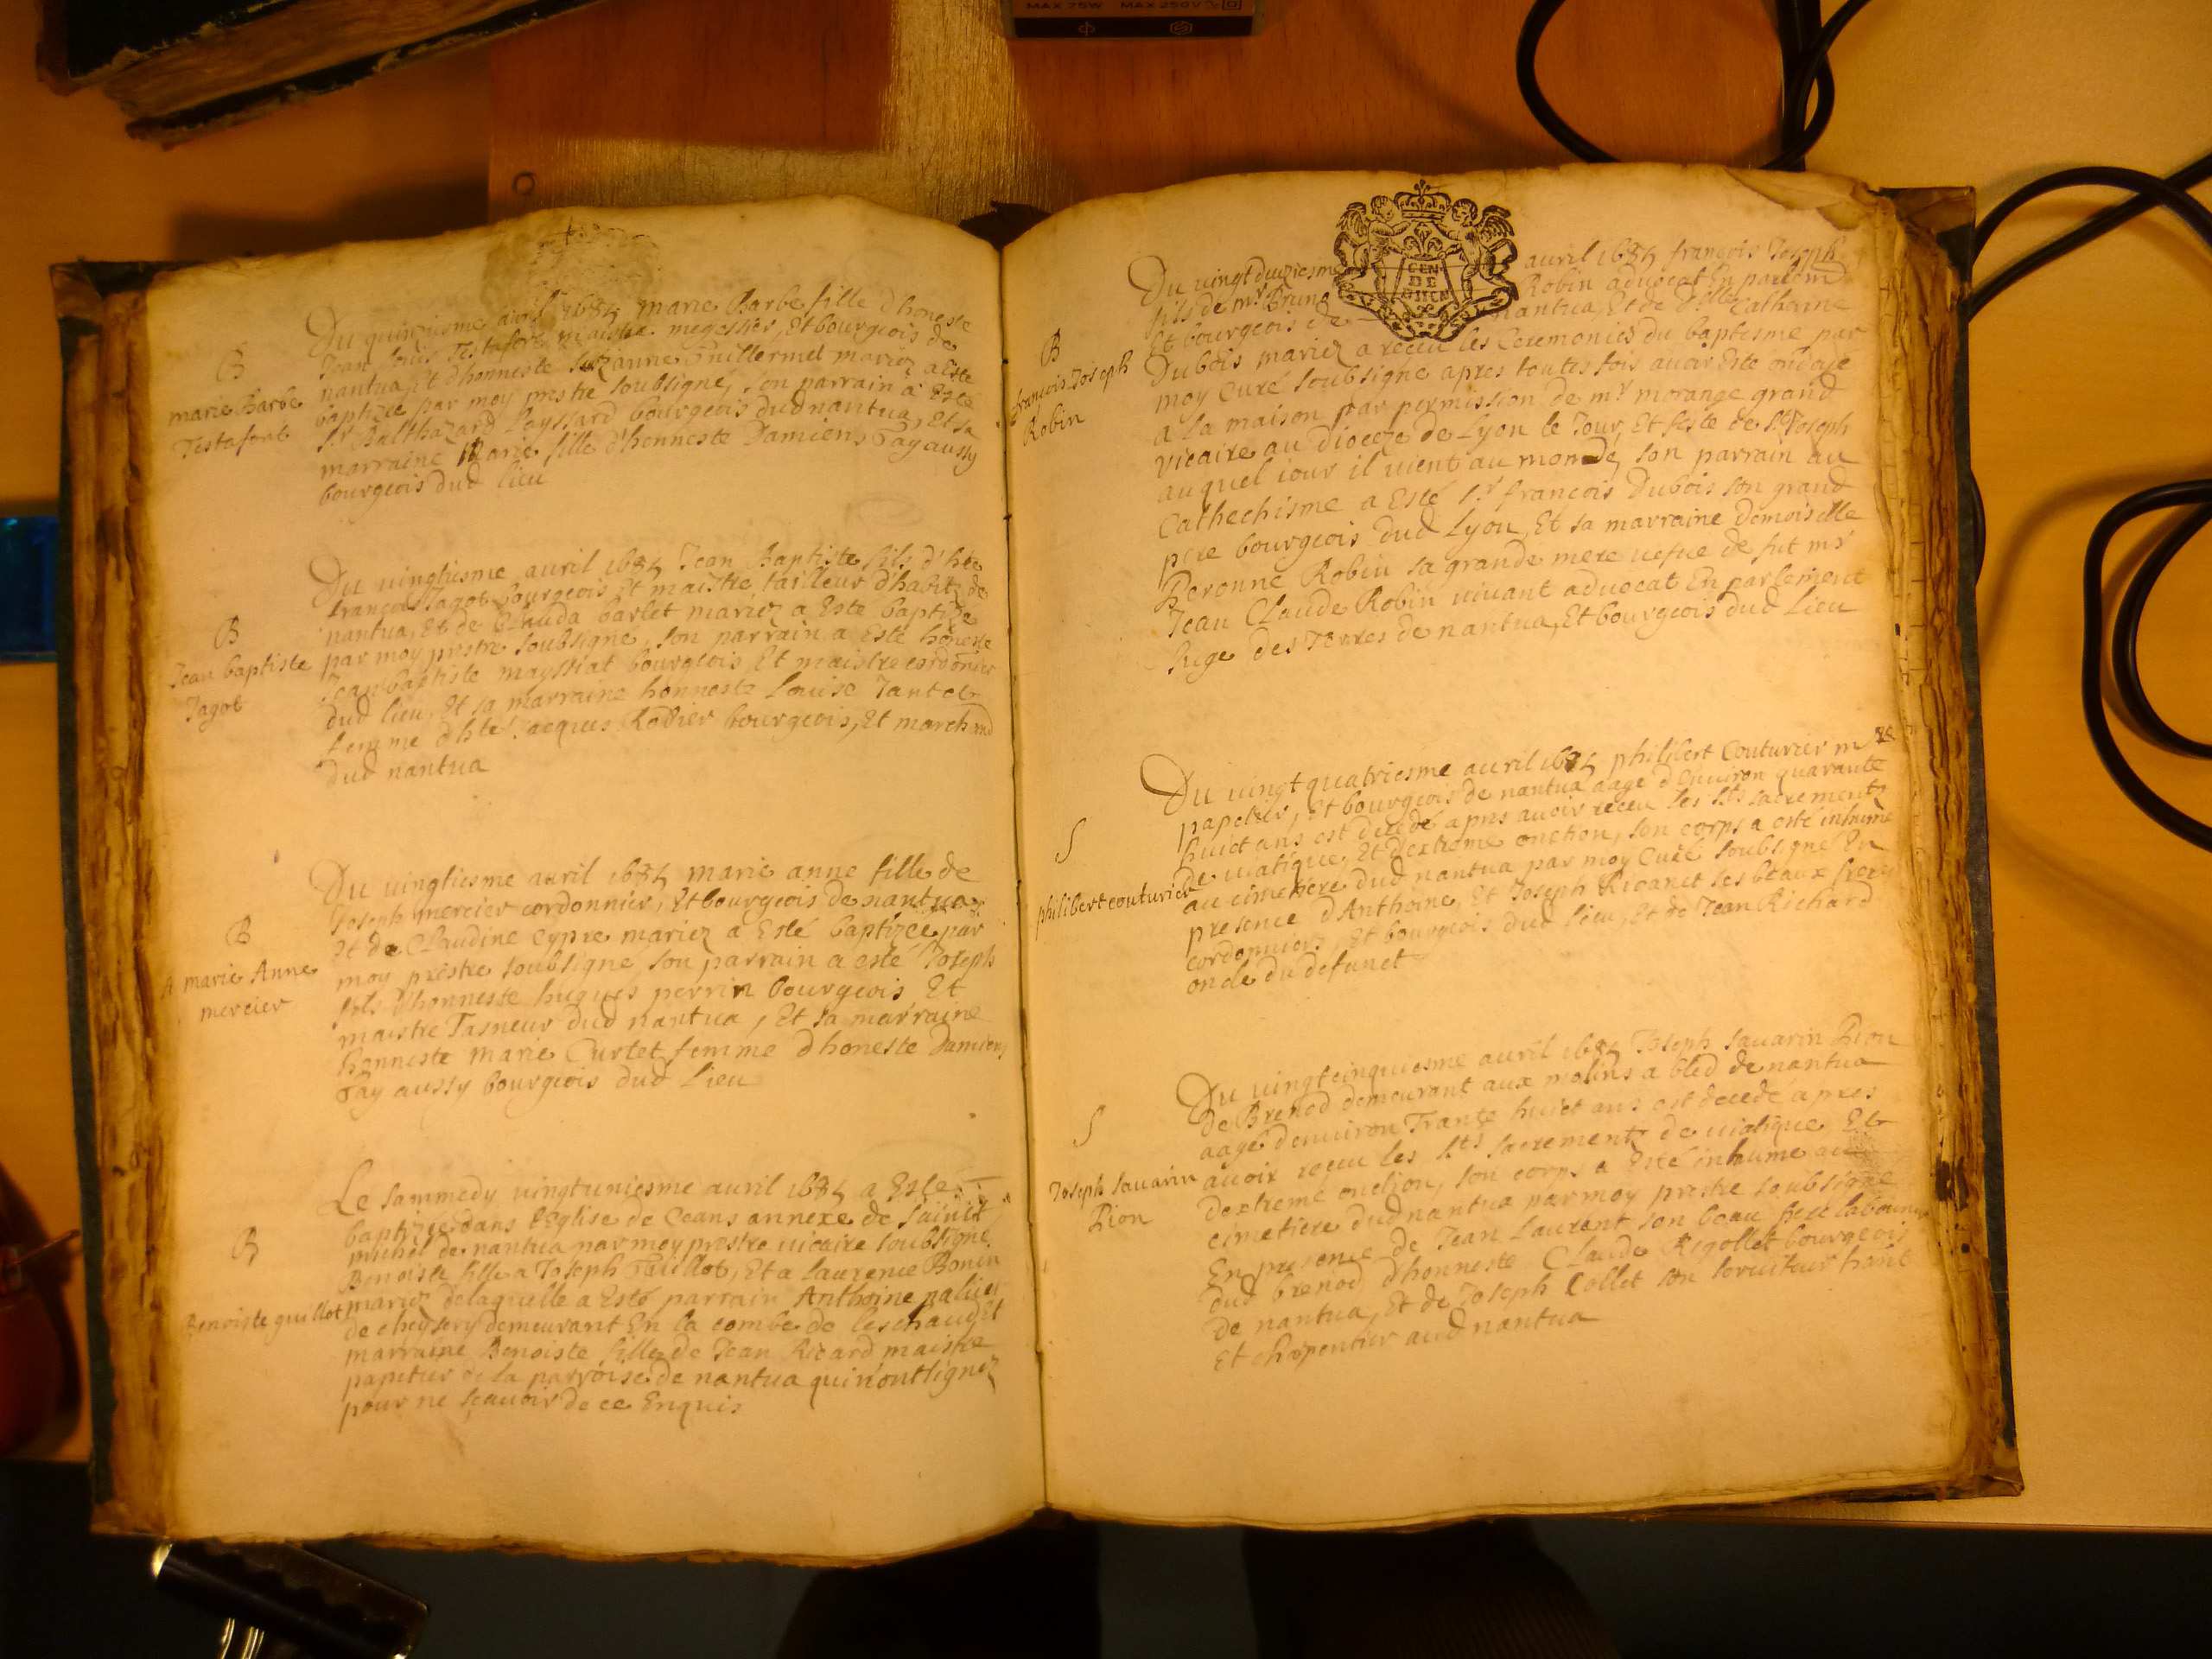 MAX 75W MAX 250V
B
marie Barbe
Testafort
Du quinziesme avril 1684 marie Barbe fille d'honeste
Jean Louis Testafort maistre megessier, Et bourgeois de
nantua, Et d'honneste Suzanne Guillermet mariez a este
baptizée par moy prestre soubsigné, son parrain a Esté
Sr Balthazard Layssard bourgeois dud nantua, Et sa
marraine Marie fille d'honneste Damiens Fay aussy
bourgeois dud lieu
B
Jean baptiste
Jagot
Du uingtiesme auril 1684 Jean Baptiste fils d'hte
francois Jagot bourgeois Et maistre tailleur d'habitz de
nantua, Et de Clauda barlet mariez a Este baptizé
par moy prestre soubsigne, son parrain a Esté honeste
Jean baptiste mayssiat bourgeois Et maistre cordonier
dud lieu, Et sa marraine honneste Louise Jantet
femme d'hte Jacques Rouier bourgeois, Et marchand
dud nantua
B
A marie Anne
mercier
Du uingtiesme auril 1684 marie anne fille de
Joseph mercier cordonnier, Et bourgeois de nantua,
Et de Claudine Cypre mariez a Esté baptizée par
moy prestre soubsigné son parrain a esté Joseph
fils d'honneste hugues perrin bourgeois, Et
maistre Tasneur dud nantua, Et sa marraine
honneste marie Curtet femme d'honeste Damiens
Fay aussy bourgeois dud Lieu
B
Benoiste guillot
Le sammedy uingtuniesme auril 1684 a Esté
baptizée dans l'Eglise de Ceans annexe de sainct
michel de nantua par moy prestre uicaire soubsigné
Benoiste fille a Joseph Guillot, Et a Laurence Bonin
mariez de laquelle a Esté parrain Anthoine paliet
de cheysery demeurant En la combe de leschaud Et
marraine Benoiste fille de Jean Ricard maistre
papetier de la parroise de nantua qui n'ont signez
pour ne sçauoir de ce Enquis
GEN
DE
B
francois Joseph
Robin
Du uingt deuziesme avril 1684 francois Joseph
fils de mr Bruno Robin aduocat En parlemt
Et bourgeois de nantua, Et de dlle Catherine
Dubois mariez a receu les Ceremonies du baptesme par
moy Curé soubsigné apres toutes fois auoir Esté ondoye
a la maison par permission de mr morange grand
vicaire au Dioceze de Lyon le Jour, Et feste de St Joseph
auquel iour il uient au monde, son parrain au
Cathechisme a Esté Sr francois Dubois son grand
pere bourgeois dud Lyon, Et sa marraine Demoiselle
Peronne Robin sa grande mere uefue de fut mr
Jean Claude Robin uiuant aduocat En parlement
Juge des Terres de nantua, Et bourgeois dud Lieu
S
philibert couturier
Du uingt quatriesme auril 1684 philibert Couturier mtre
papetier, Et bourgeois de nantua aagé d'Enuiron quarante
huict ans est decedé apres auoir receu les Sts sacrements
de uiatique, Et d'extreme onction, son corps a esté inhumé
au cimetiere dud nantua par moy Curé soubsigné En
presence d'Anthoine, Et Joseph Ricanet ses beaux freres
cordonniers, Et bourgeois dud lieu, Et de Jean Richard
oncle du defunct
S
Joseph sauarin
Pion
Du uingtcinquiesme auril 1684 Joseph sauarin Pion
de Brenod demeurant aux molins a bled de nantua
aagé d'enuiron Trante huict ans est decedé apres
auoir receu les Sts sacrements de uiatique Et
d'extreme onction, son corps a Esté inhumé au
cimetiere dud nantua par moy prestre soubsigné
En presence de Jean Laurent son beau frere laboureur
dud brenod d'honneste Claude Rigollet bourgeois
de nantua, Et de Joseph Collet son seruiteur
Et charpentier aud nantua